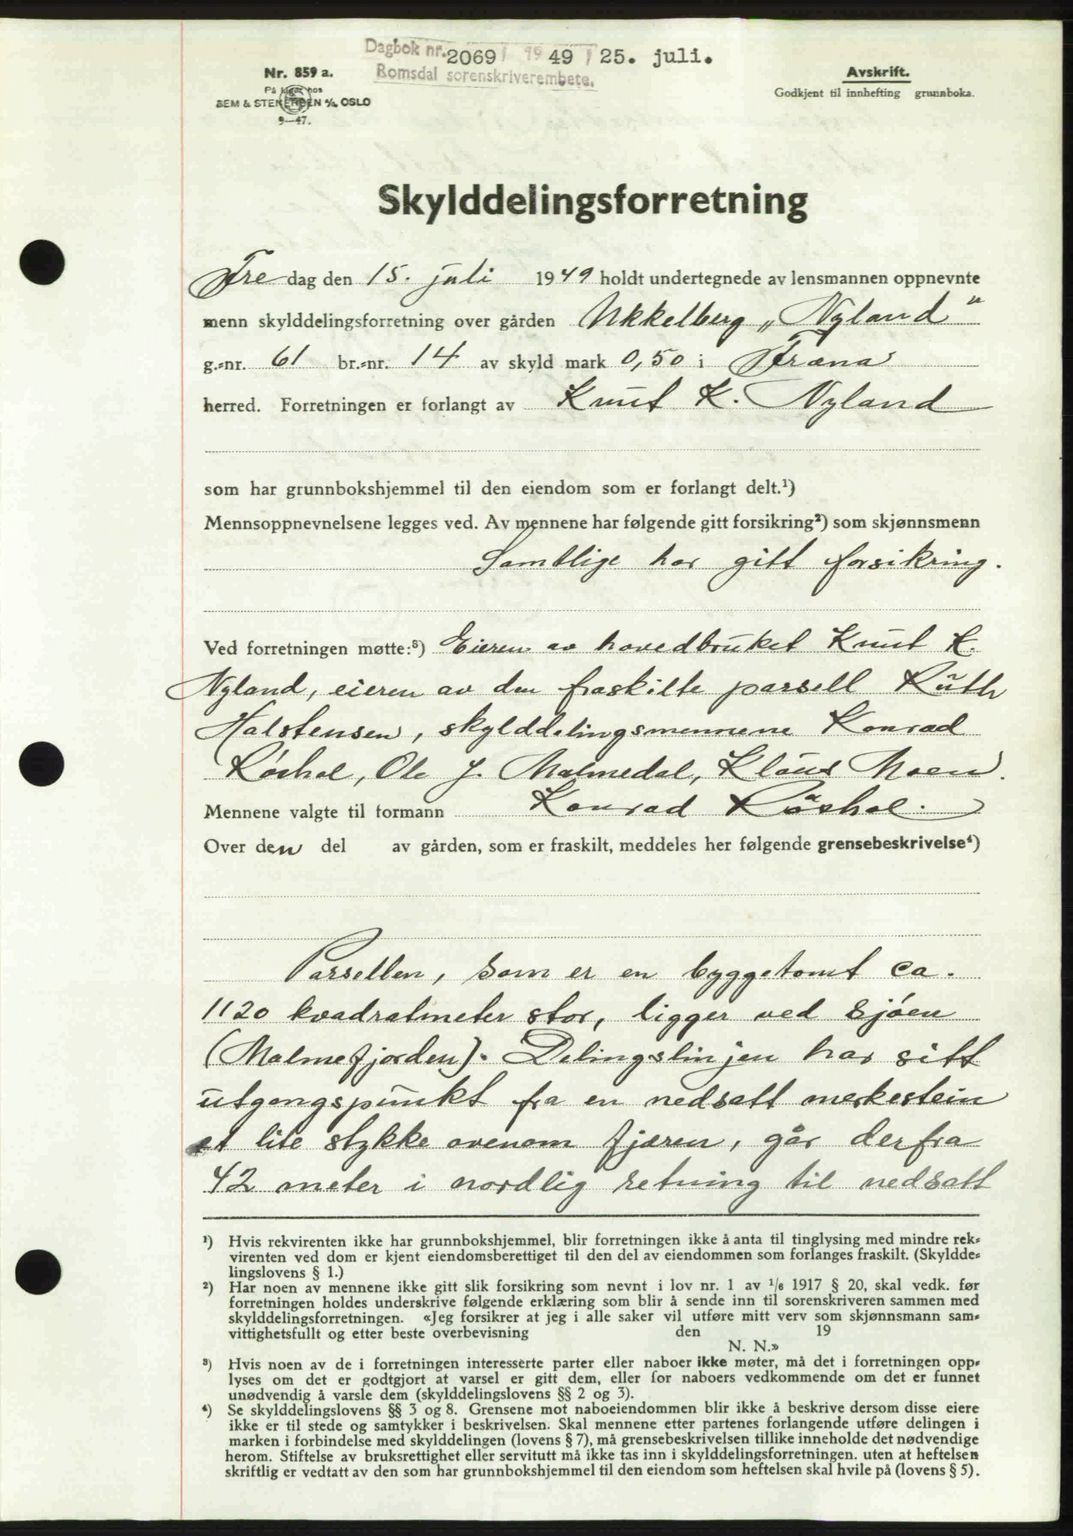 Dagbok nr. 2069 / 1949 / 25. juli.
Romsdal sorenskriverembete.
Nr. 859 a.
På lager hos
SEM & STENERSEN A/S, OSLO
9—47.
Avskrift.
Godkjent til innhefting grunnboka.
Skylddelingsforretning
Fredag den 15. juli 1949 holdt undertegnede av lensmannen oppnevnte
menn skylddelingsforretning over gården Ukkelberg „Nyland"
g.-nr. 61 br.-nr. 14 av skyld mark 0,50 i Fræna
herred. Forretningen er forlangt av Knut K. Nyland
som har grunnbokshjemmel til den eiendom som er forlangt delt.¹)
Mennsoppnevnelsene legges ved. Av mennene har følgende gitt forsikring²) som skjønnsmenn
Samtlige har gitt forsikring.
Ved forretningen møtte:³) Eieren av hovedbruket Knut K.
Nyland, eieren av den fraskilte parsell Ruth
Halstensen, skylddelingsmennene Konrad
Røshol, Ole J. Malmedal, Klaus Moen.
Mennene valgte til formann Konrad Røshol.
Over den del av gården, som er fraskilt, meddeles her følgende grensebeskrivelse⁴)
Parsellen, som er en byggetomt ca.
1120 kvadratmeter stor, ligger ved sjøen
(Malmefjorden). Delingslinjen har sitt
utgangspunkt fra en nedsatt merkestein
et lite stykke ovenom fjæren, går derfra
42 meter i nordlig retning til nedsatt
¹) Hvis rekvirenten ikke har grunnbokshjemmel, blir forretningen ikke å anta til tinglysing med mindre rek-
virenten ved dom er kjent eiendomsberettiget til den del av eiendommen som forlanges fraskilt. (Skyldde-
lingslovens § 1.)
²) Har noen av mennene ikke gitt slik forsikring som nevnt i lov nr. 1 av 1/6 1917 § 20, skal vedk. før
forretningen holdes underskrive følgende erklæring som blir å sende inn til sorenskriveren sammen med
skylddelingsforretningen. «Jeg forsikrer at jeg i alle saker vil utføre mitt verv som skjønnsmann sam-
vittighetsfullt og etter beste overbevisning den 19
N. N.»
³) Hvis noen av de i forretningen interesserte parter eller naboer ikke møter, må det i forretningen opp-
lyses om det er godtgjort at varsel er gitt dem, eller for naboers vedkommende om det er funnet
unødvendig å varsle dem (skylddelingslovens §§ 2 og 3).
⁴) Se skylddelingslovens §§ 3 og 8. Grensene mot naboeiendommen blir ikke å beskrive dersom disse eiere
ikke er til stede og samtykker i beskrivelsen. Skal mennene etter partenes forlangende utføre delingen i
marken i forbindelse med skylddelingen (lovens § 7), må grensebeskrivelsen tillike inneholde det nødvendige
herom. Stiftelse av bruksrettighet eller servitutt må ikke tas inn i skylddelingsforretningen. uten at heftelsen
skriftlig er vedtatt av den som har grunnbokshjemmel til den eiendom som heftelsen skal hvile på (lovens § 5).